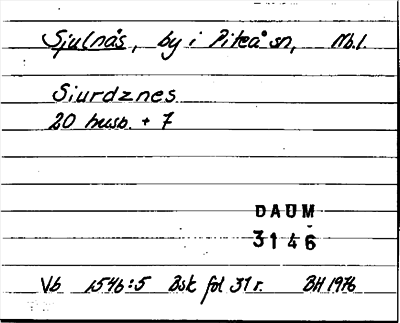 Sjulnäs, by i Piteå sn, Nb.l.
Siurdznes
20 husb. + 7
DAUM
3146
Vb 1546:5 Bsk fol 31r. BH 1976